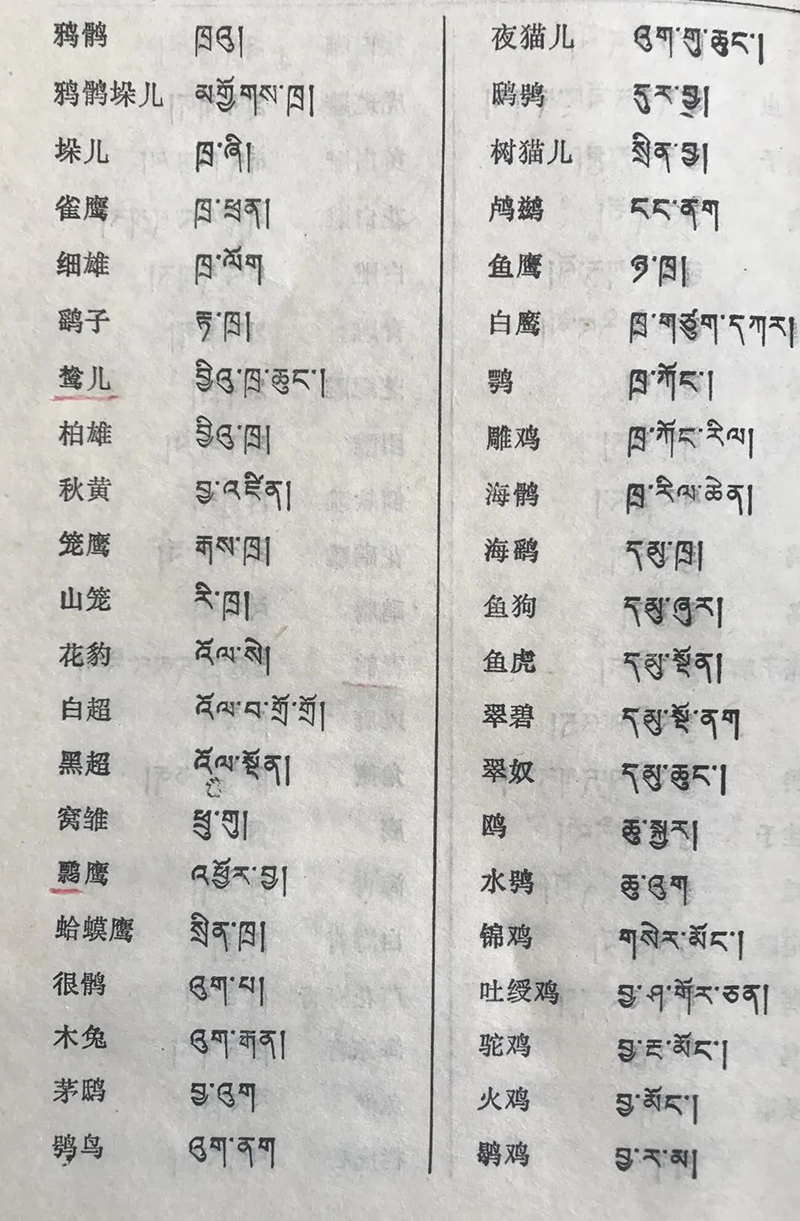 鸦鹘 ཁྲའུ།
鸦鹘垛儿 མགྱོགས་ཁྲ།
垛儿 ཁྲ་ཞི།
雀鹰 ཁྲ་ཕྲན།
细雄 ཁྲ་ལོག
鹞子 ཏ་ཁྲ།
鸷儿 བྱིའུ་ཁྲ་ཆུང་།
柏雄 བྱིའུ་ཁྲ།
秋黄 བྱ་འཛིན།
笼鹰 རྒས་ཁྲ།
山笼 རི་ཁྲ།
花豹 འོལ་སེ།
白超 འོལ་བ་གྲོ་གྲོ།
黑超 འོལ་སྔོན།
窝雏 ཕྲུ་གུ།
鹰 འཕྱོར་བྱ།
蛤蟆鹰 སྲིན་ཁྲ།
很鹘 འུག་པ།
木兔 འུག་རྒན།
茅鸱 བྱ་འུག
鸮鸟 འུག་ནག
夜猫儿 འུག་གུ་ཆུང་།
鸱鸮 དུར་བྱ།
树猫儿 སྲིན་བྱ།
鸬鹚 ངང་ནག
鱼鹰 ཉ་ཁྲ།
白鹰 ཁྲ་གཙུག་དཀར།
鹗 ཁྲ་ཀོང་།
雕鸡 ཁྲ་ཀོང་རིལ།
海鹘 ཁྲ་རིལ་ཆེན།
海鹞 དམུ་ཁྲ།
鱼狗 དམུ་ཞུར།
鱼虎 དམུ་སྔོན།
翠碧 དམུ་སྔོ་ནག
翠奴 དམུ་ཆུང་།
鸥 ཆུ་སྐྱར།
水鸮 ཆུ་འུག
锦鸡 གསེར་མོང་།
吐绶鸡 བྱ་ཤ་གོར་ཅན།
驼鸡 བྱ་ང་མོང་།
火鸡 བྱ་མོང་།
鹖鸡 བྱ་ར་མ།